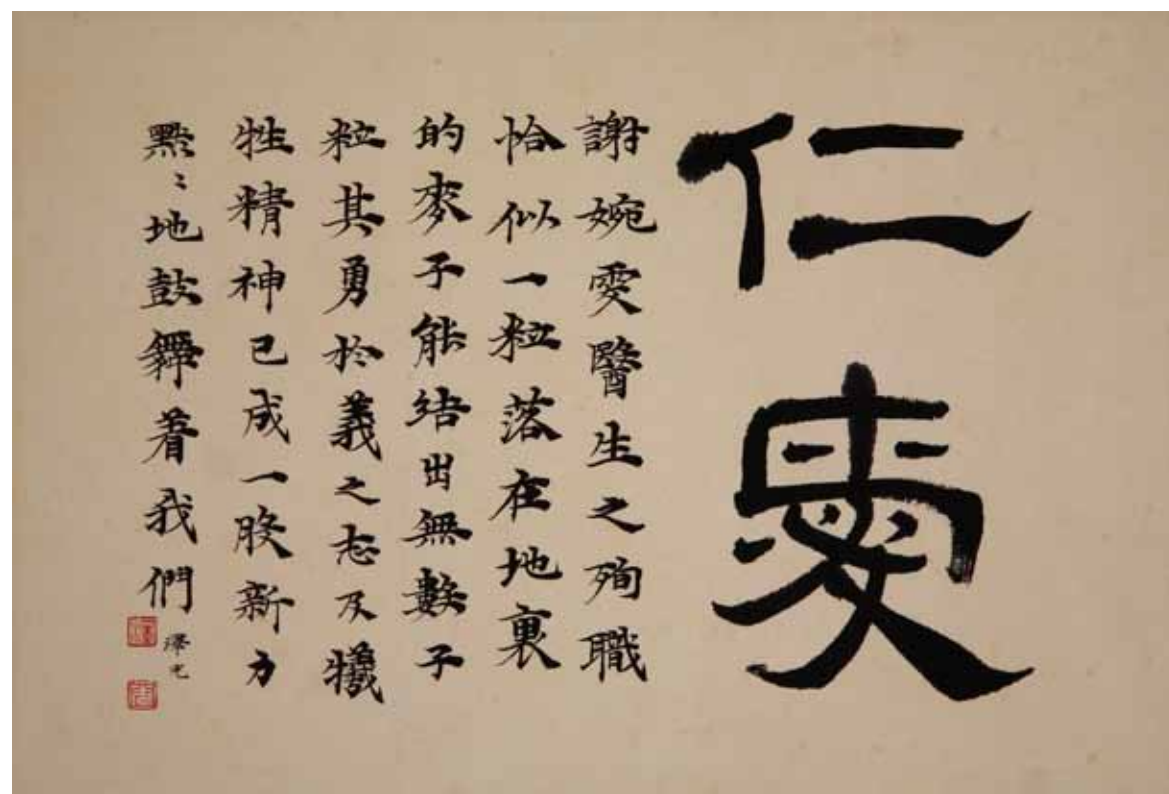 仁愛
謝婉雯醫生之殉職
恰似一粒落在地裏
的麥子能結出無數子
粒其勇於義之志及犧
牲精神已成一股新力
默〻地鼓舞着我們
澤光